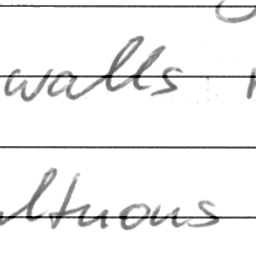 walls
ltuous